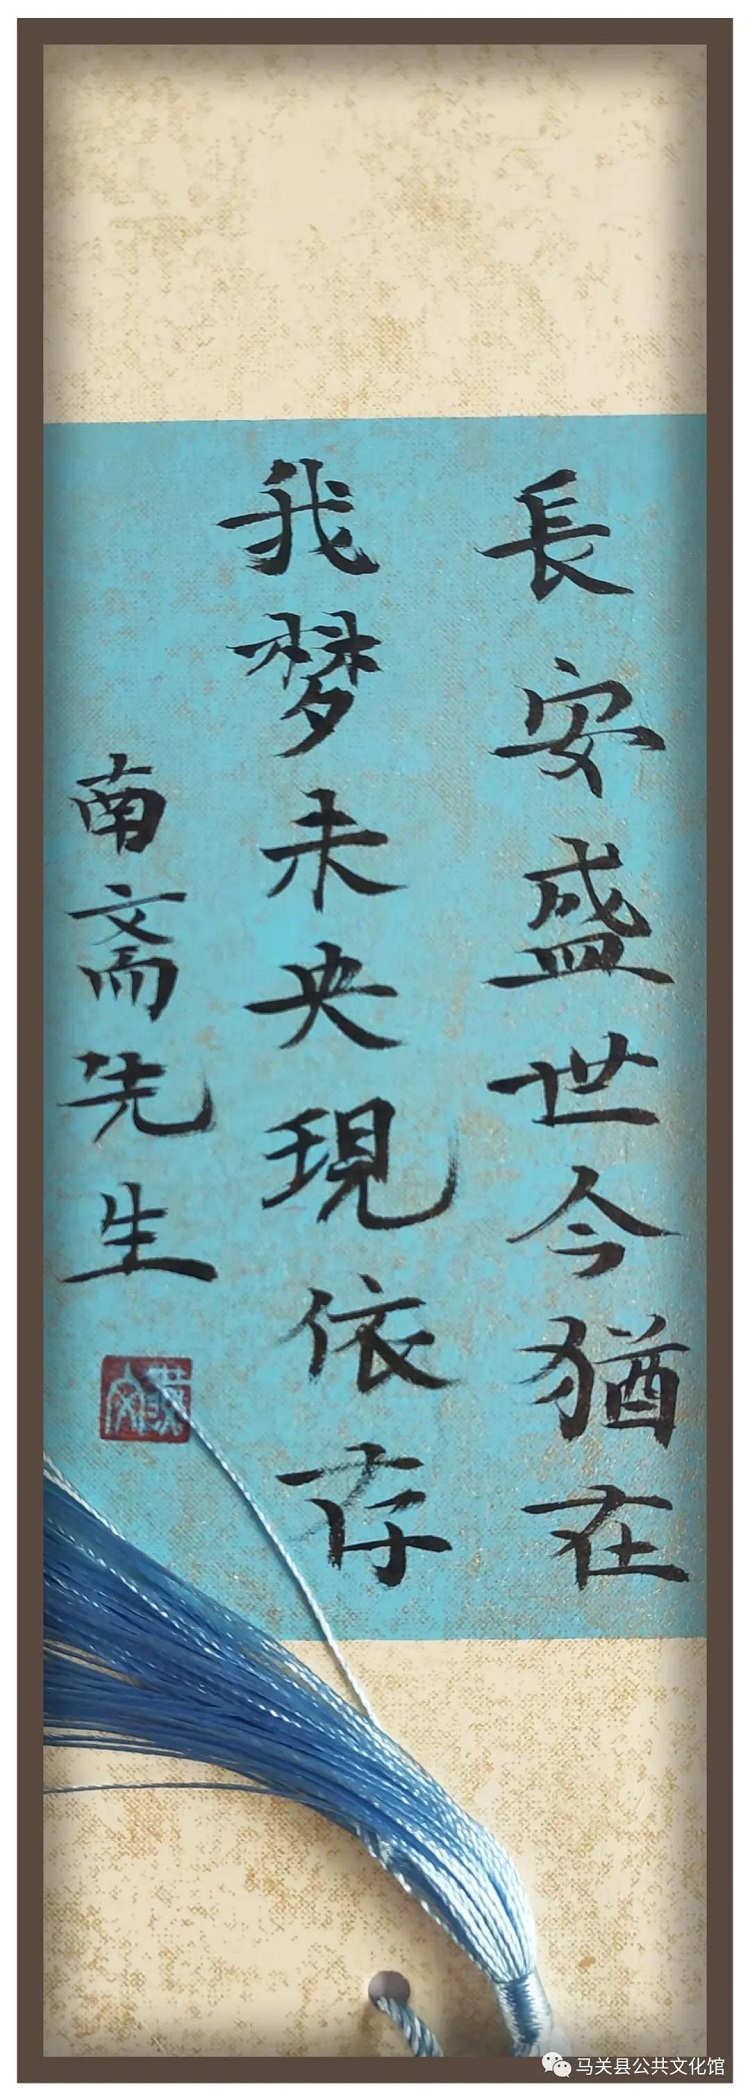 長安盛世今猶在
我梦未央現依存
南斋先生
马关县公共文化馆